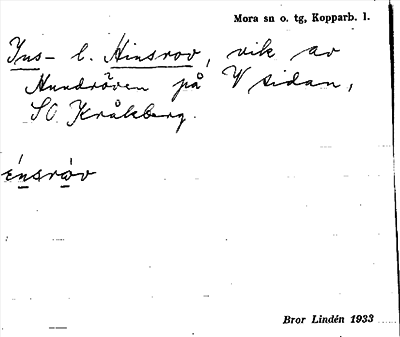 Mora sn o. tg, Kopparb. l.
Ins- l. Hinsrov, vik av
Hundröven på V sidan,
SO Kråkberg.
énsrov
Bror Lindén 1933